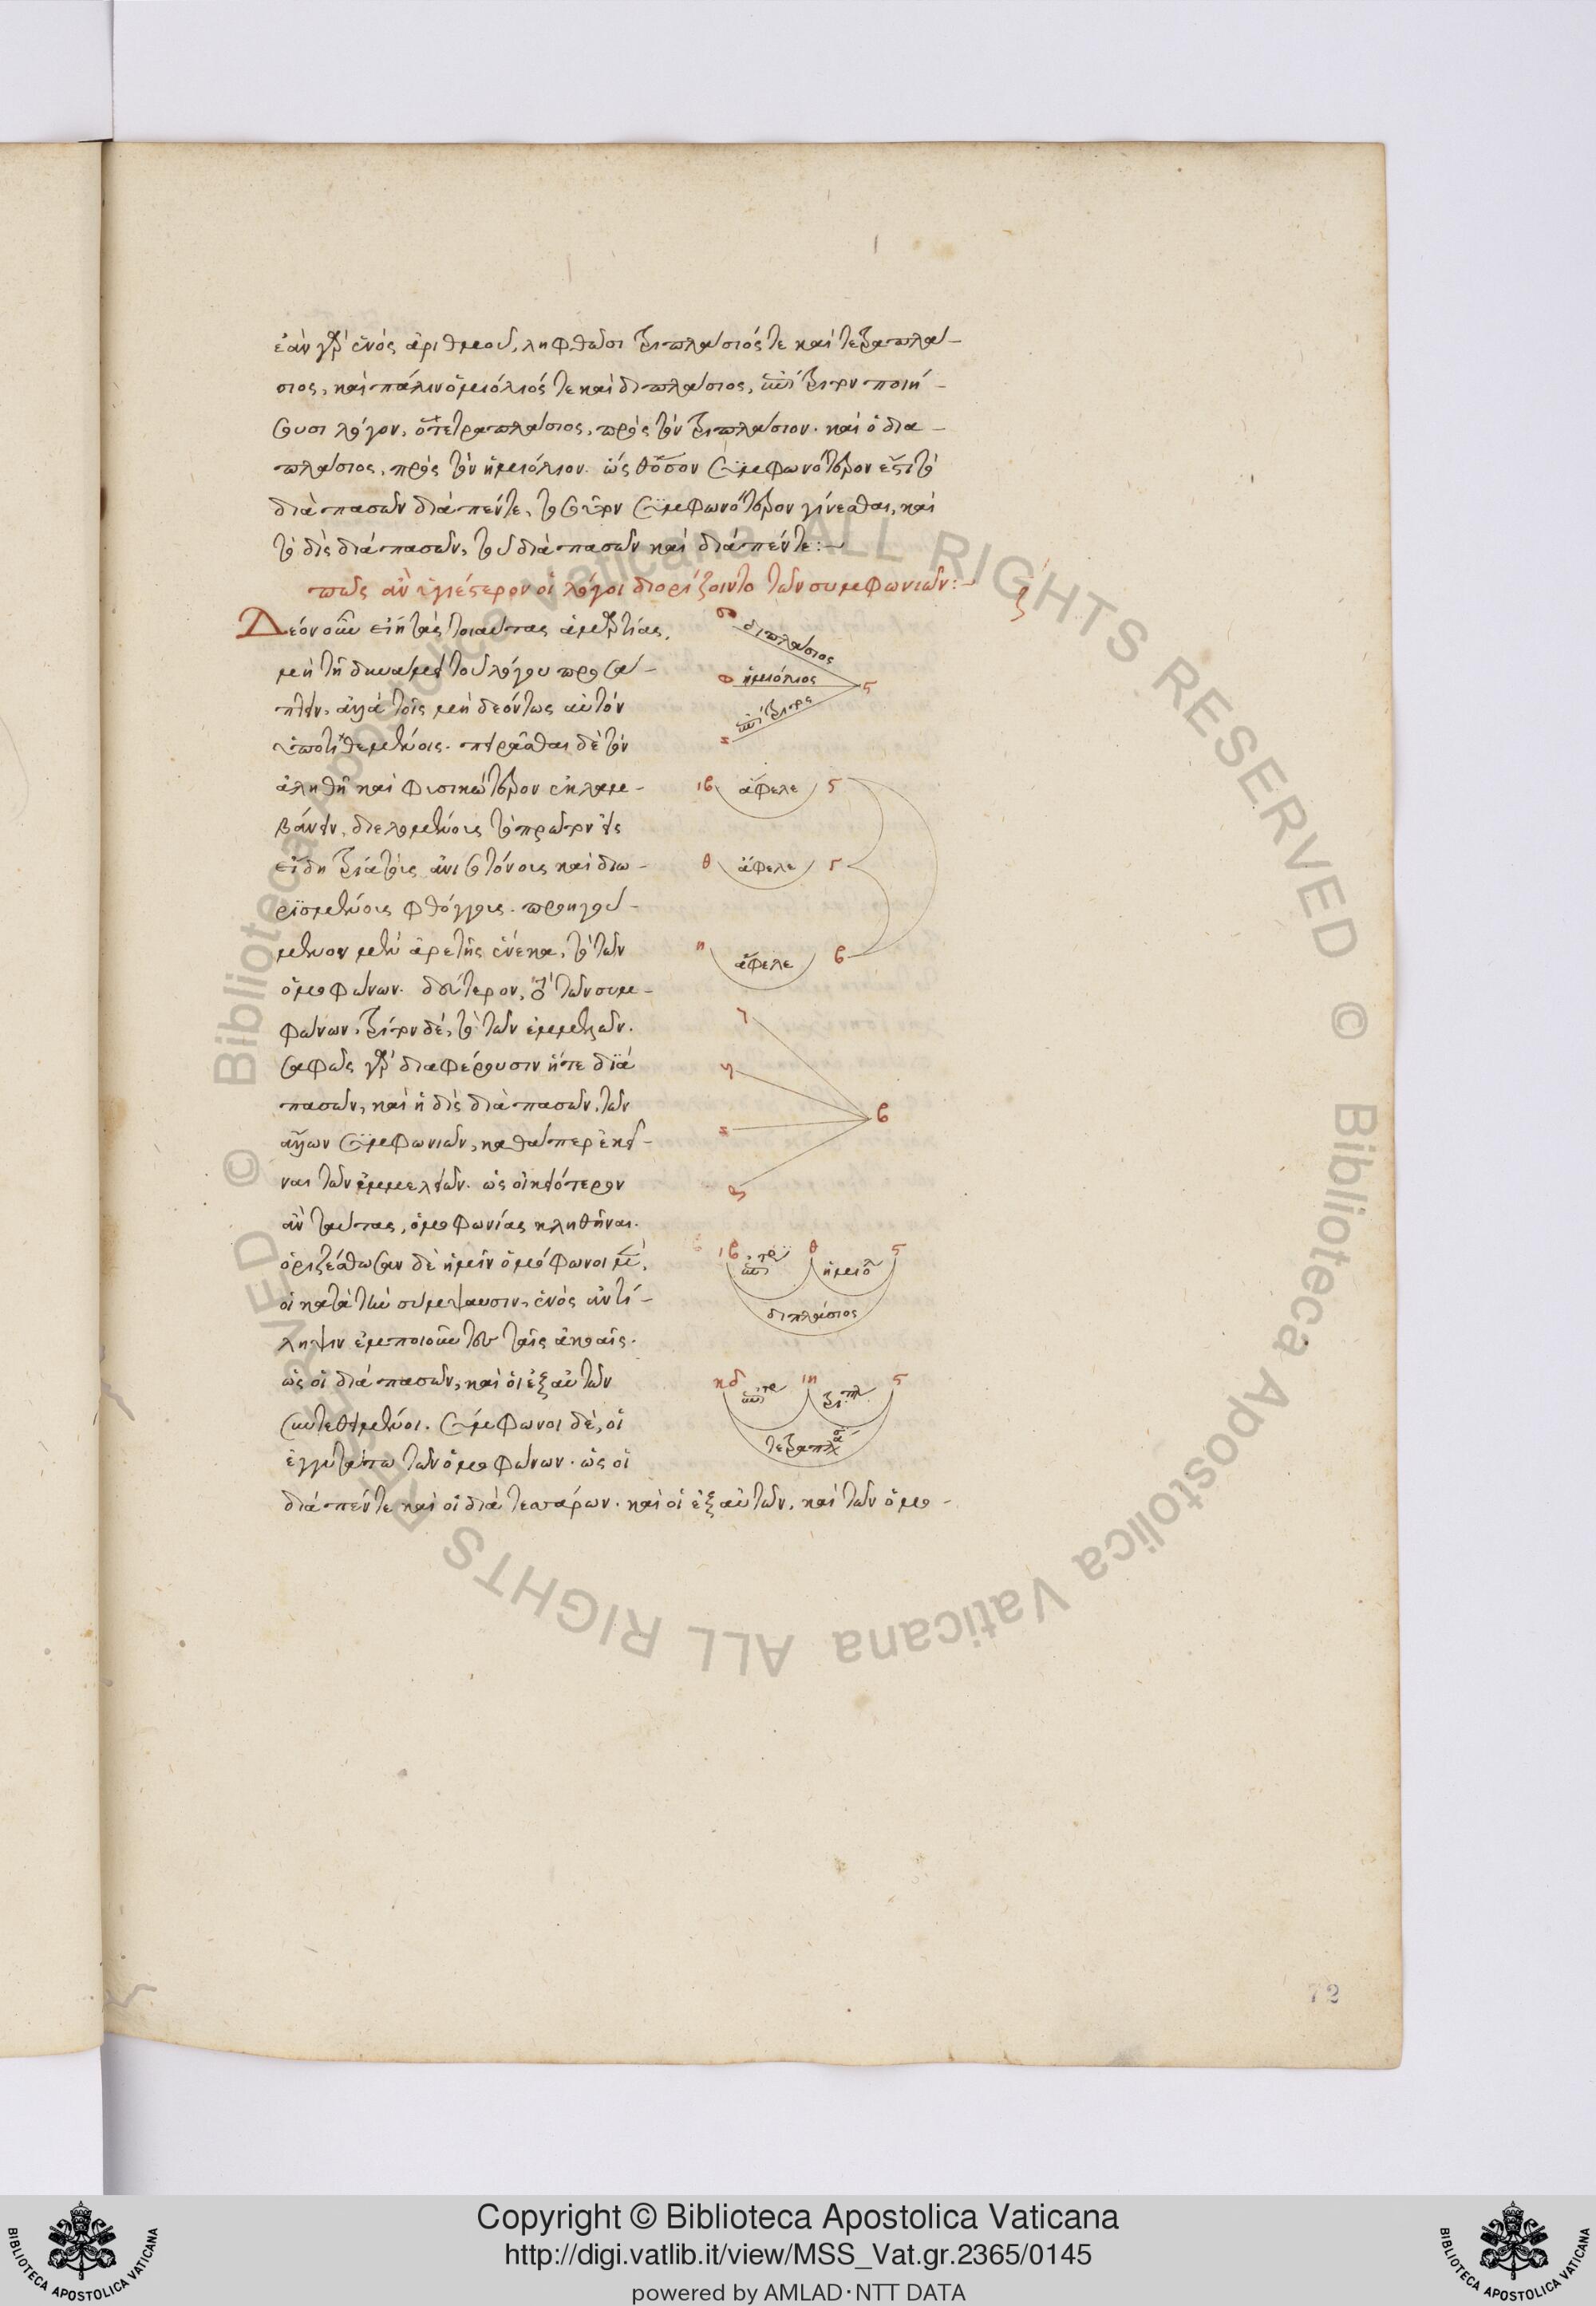 ἐὰν γὰρ ἑνὸς ἀριθμοῦ, ληφθῶσι τριπλάσιός τε καὶ τετραπλά-
σιος, καὶ πάλιν ἡμιόλιός τε καὶ διπλάσιος, ἐπίτριτον ποιή-
σουσι λόγον, ὅ τε τετραπλάσιος, πρὸς τὸν τριπλάσιον. καὶ ὁ δια-
πλάσιος, πρὸς τὸν ἡμιόλιον. ὡς θ' ὅσον συμφωνότερον ἐστὶ τὸ
διὰ πασῶν διὰ πέντε, τοσοῦτον συμφωνότερον γίνεσθαι, καὶ
τὸ δὶς διὰ πασῶν, τοῦ διὰ πασῶν καὶ διὰ πέντε:~
πῶς ἂν ὑγιέστερον οἱ λόγοι διορίζοιντο τῶν συμφωνιῶν:~ ζ
Δέον οὖν εἴη τὰς τοιαύτας ἁμαρτίας,
μὴ τῇ δυνάμει τοῦ λόγου προσά-
πτειν, ἀλλὰ τοῖς μὴ δεόντως αὐτὸν
ὑποτιθεμένοις. πειρᾶσθαι δὲ τὸν
ἀληθῆ καὶ φυσικώτερον ἐκλαμ-
βάνειν, διελομένοις τὸ πρῶτον εἰς
εἴδη τρία τοῖς ἀνισοτόνοις καὶ διω-
ρισμένοις φθόγγοις. προηγού-
μενον μὲν ἀρετῆς ἕνεκα, τὸ τῶν
ὁμοφώνων. δεύτερον, τὸ τῶν συμ-
φώνων, τρίτον δὲ, τὸ τῶν ἐμμελῶν.
σαφῶς γὰρ διαφέρουσιν ἥ τε διὰ
πασῶν, καὶ ἡ δὶς διὰ πασῶν, τῶν
ἄλλων συμφωνιῶν, καθάπερ ἐκεῖ-
ναι τῶν ἐμμελειῶν. ὡς οἰκειότερον
ἂν ταύτας, ὁμοφωνίας κληθῆναι.
ὁριζέσθωσαν δὲ ἡμῖν ὁμόφωνοι μὲν,
οἱ κατὰ τὴν σύμψαυσιν, ἑνὸς ἀντί-
ληψιν ἐμποιοῦντες ταῖς ἀκοαῖς.
ὡς οἱ διὰ πασῶν, καὶ οἱ ἐξ αὐτῶν
συντεθειμένοι. σύμφωνοι δὲ, οἱ
ἐγγυτάτω τῶν ὁμοφώνων. ὡς οἱ
διὰ πέντε καὶ οἱ διὰ τεσσάρων. καὶ οἱ ἐξ αὐτῶν, καὶ τῶν ὁμο-
διπλάσιος
ἡμιόλιος ϛ
ἐπίτριτος
ιβ ἄφελε ϛ
θ ἄφελε γ
η ἄφελε β
β
ιβ ἐπίτρι θ ἡμιολ ϛ
διπλάσιος
κδ ἐπίτρ ιη τριπλ ϛ
τετραπλα
72
© Biblioteca Apostolica Vaticana ALL RIGHTS RESERVED © Biblioteca Apostolica Vaticana ALL RIGHTS RESERVED
BIBLIOTECA APOSTOLICA VATICANA
Copyright © Biblioteca Apostolica Vaticana
http://digi.vatlib.it/view/MSS_Vat.gr.2365/0145
powered by AMLAD·NTT DATA
BIBLIOTECA APOSTOLICA VATICANA